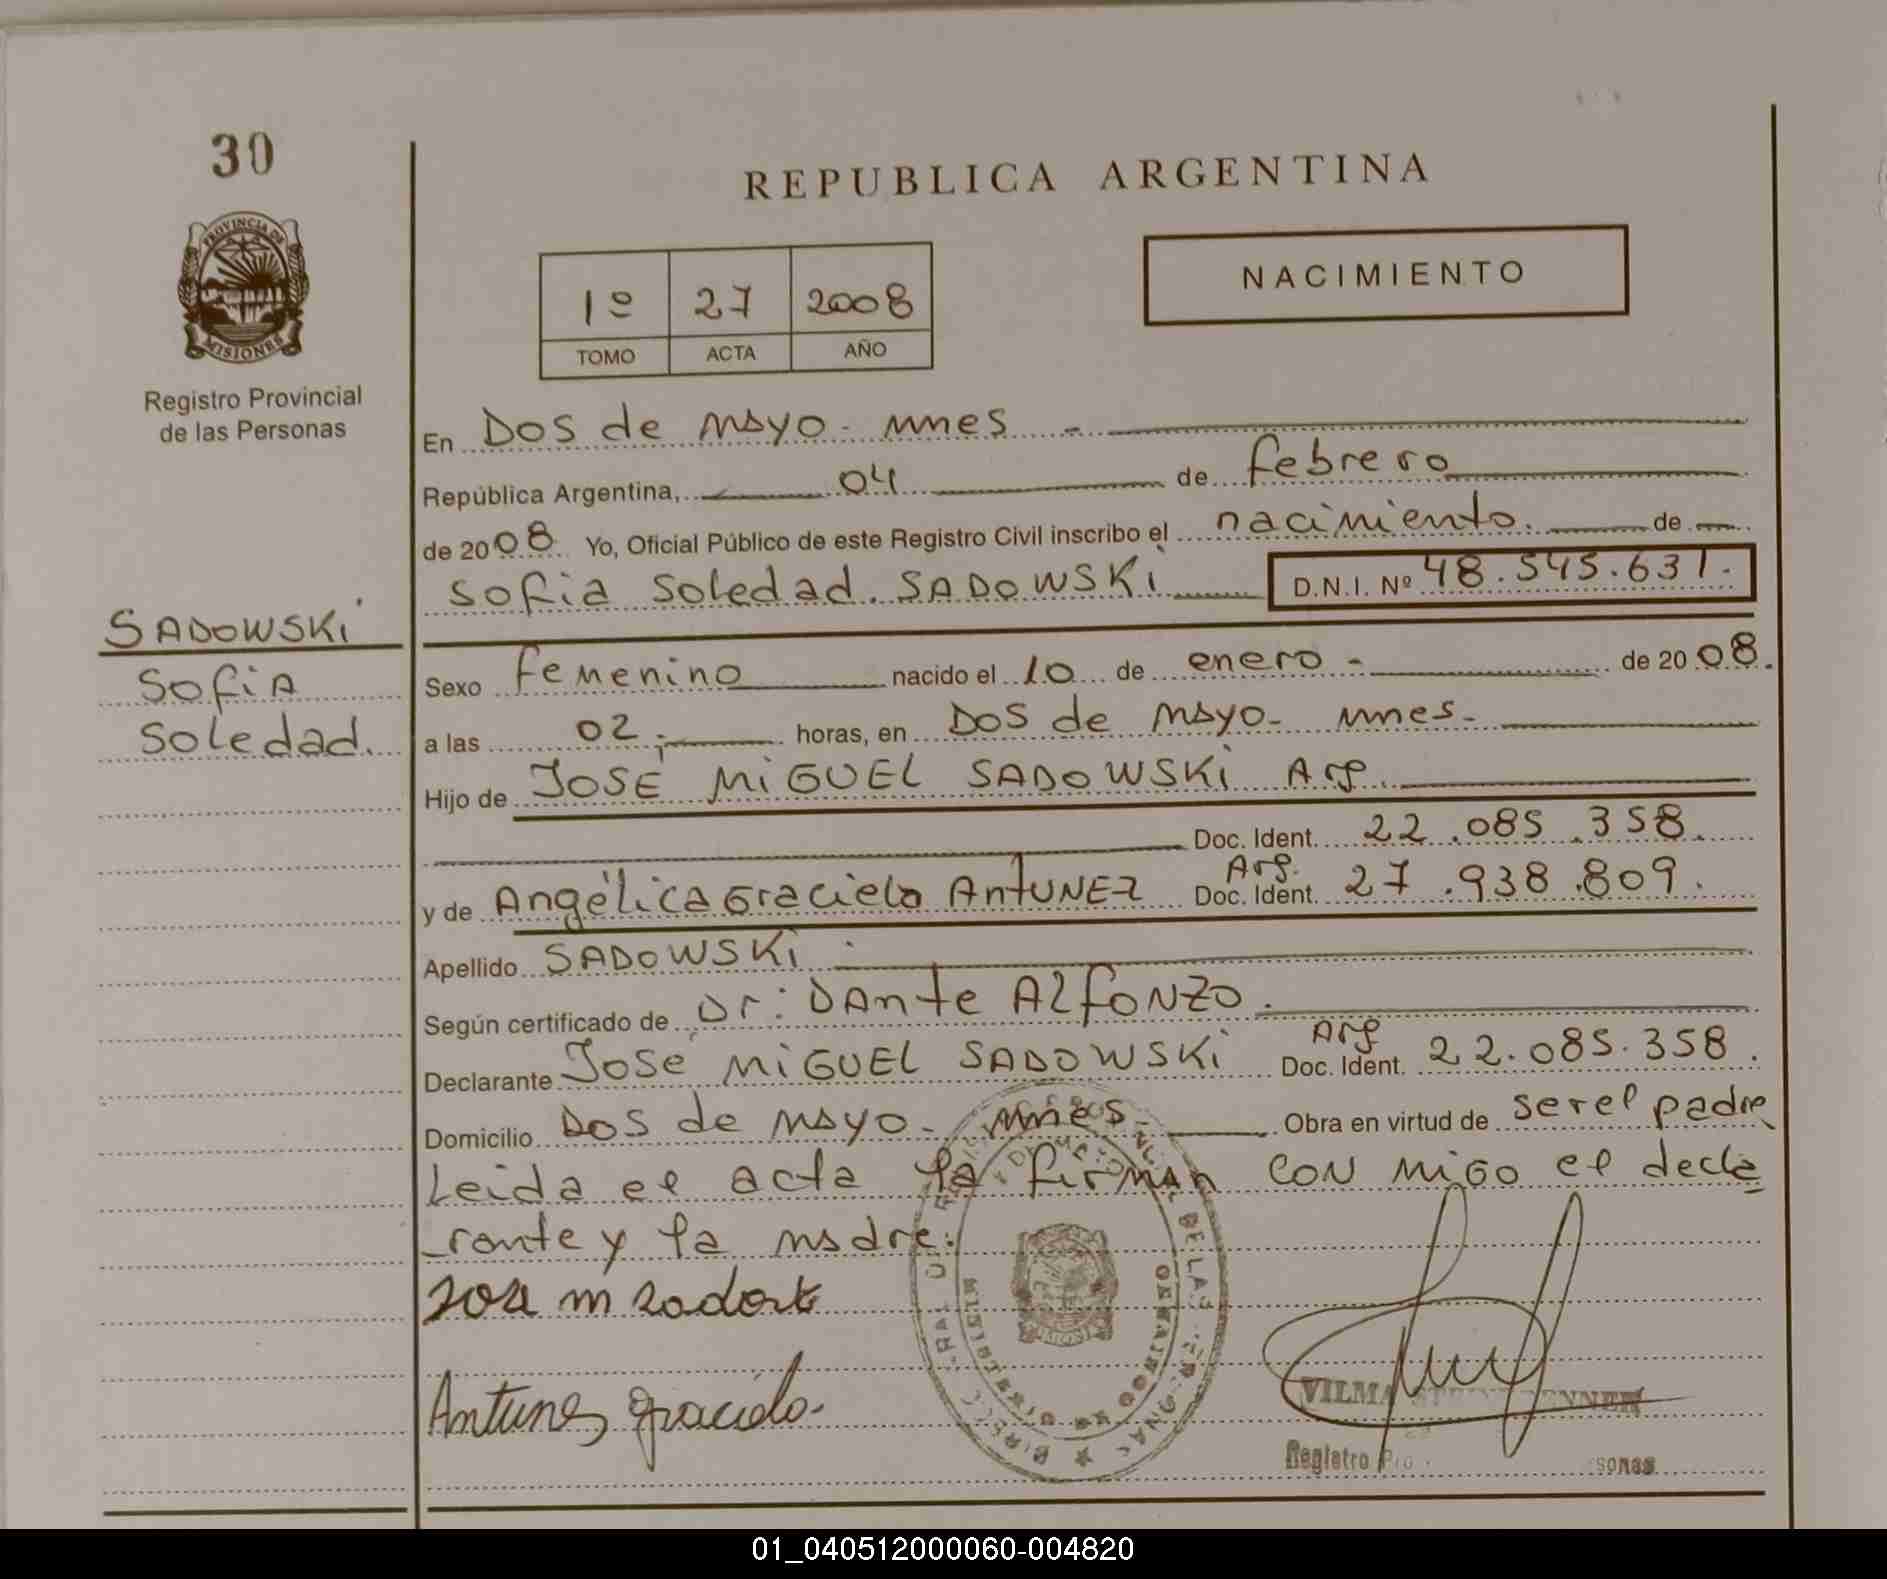 30
REPUBLICA ARGENTINA
PROVINCIA DE
MISIONES
Registro Provincial
de las Personas
1º 27 2008
TOMO ACTA AÑO
NACIMIENTO
En Dos de mayo - mnes -
República Argentina, 04 de febrero
de 2008 Yo, Oficial Público de este Registro Civil inscribo el nacimiento. de
Sofia Soledad. SADOWSKi D.N.I. Nº 48.545.631.-
SADOWSKi
Sofia
Soledad.
Sexo femenino nacido el 10 de enero - de 2008.
a las 02 horas, en Dos de mayo - mnes -
Hijo de JOSÉ MiGUEL SADOWSKi Arg.
Doc. Ident. 22.085.358.
Arg.
y de Angélica Graciela AntUNEZ Doc. Ident. 27.938.809.
Apellido SADOWSKi
Según certificado de Dr: DAnte AlfoNZO.
Arg
Declarante JOSé MiGUEL SADOWSKi Doc. Ident. 22.085.358.
Domicilio Dos de mayo - mnes - Obra en virtud de ser el padre
Leida el acta la firman CON migo el decla
rante y la madre.
Antunes graciela.
VILMA
Registro sonas
01_040512000060-004820